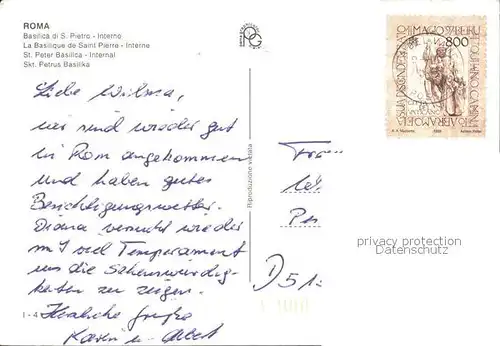 ROMA
Basilica di S. Pietro - Interno
La Basilique de Saint Pierre - Interne
St. Peter Basilica - Internal
Skt. Petrus Basilika
800
Liebe Wilma,
wir sind wieder gut
in Rom angekommen
und haben gutes
Besichtigungswetter.
Diana versucht wieder
mit viel Temperament
uns die Sehenswürdig-
keiten zu zeigen.
Herzliche Grüße
Karin u. Albert
I - 4
Riproduzione vietata
D 51
privacy protection
Datenschutz